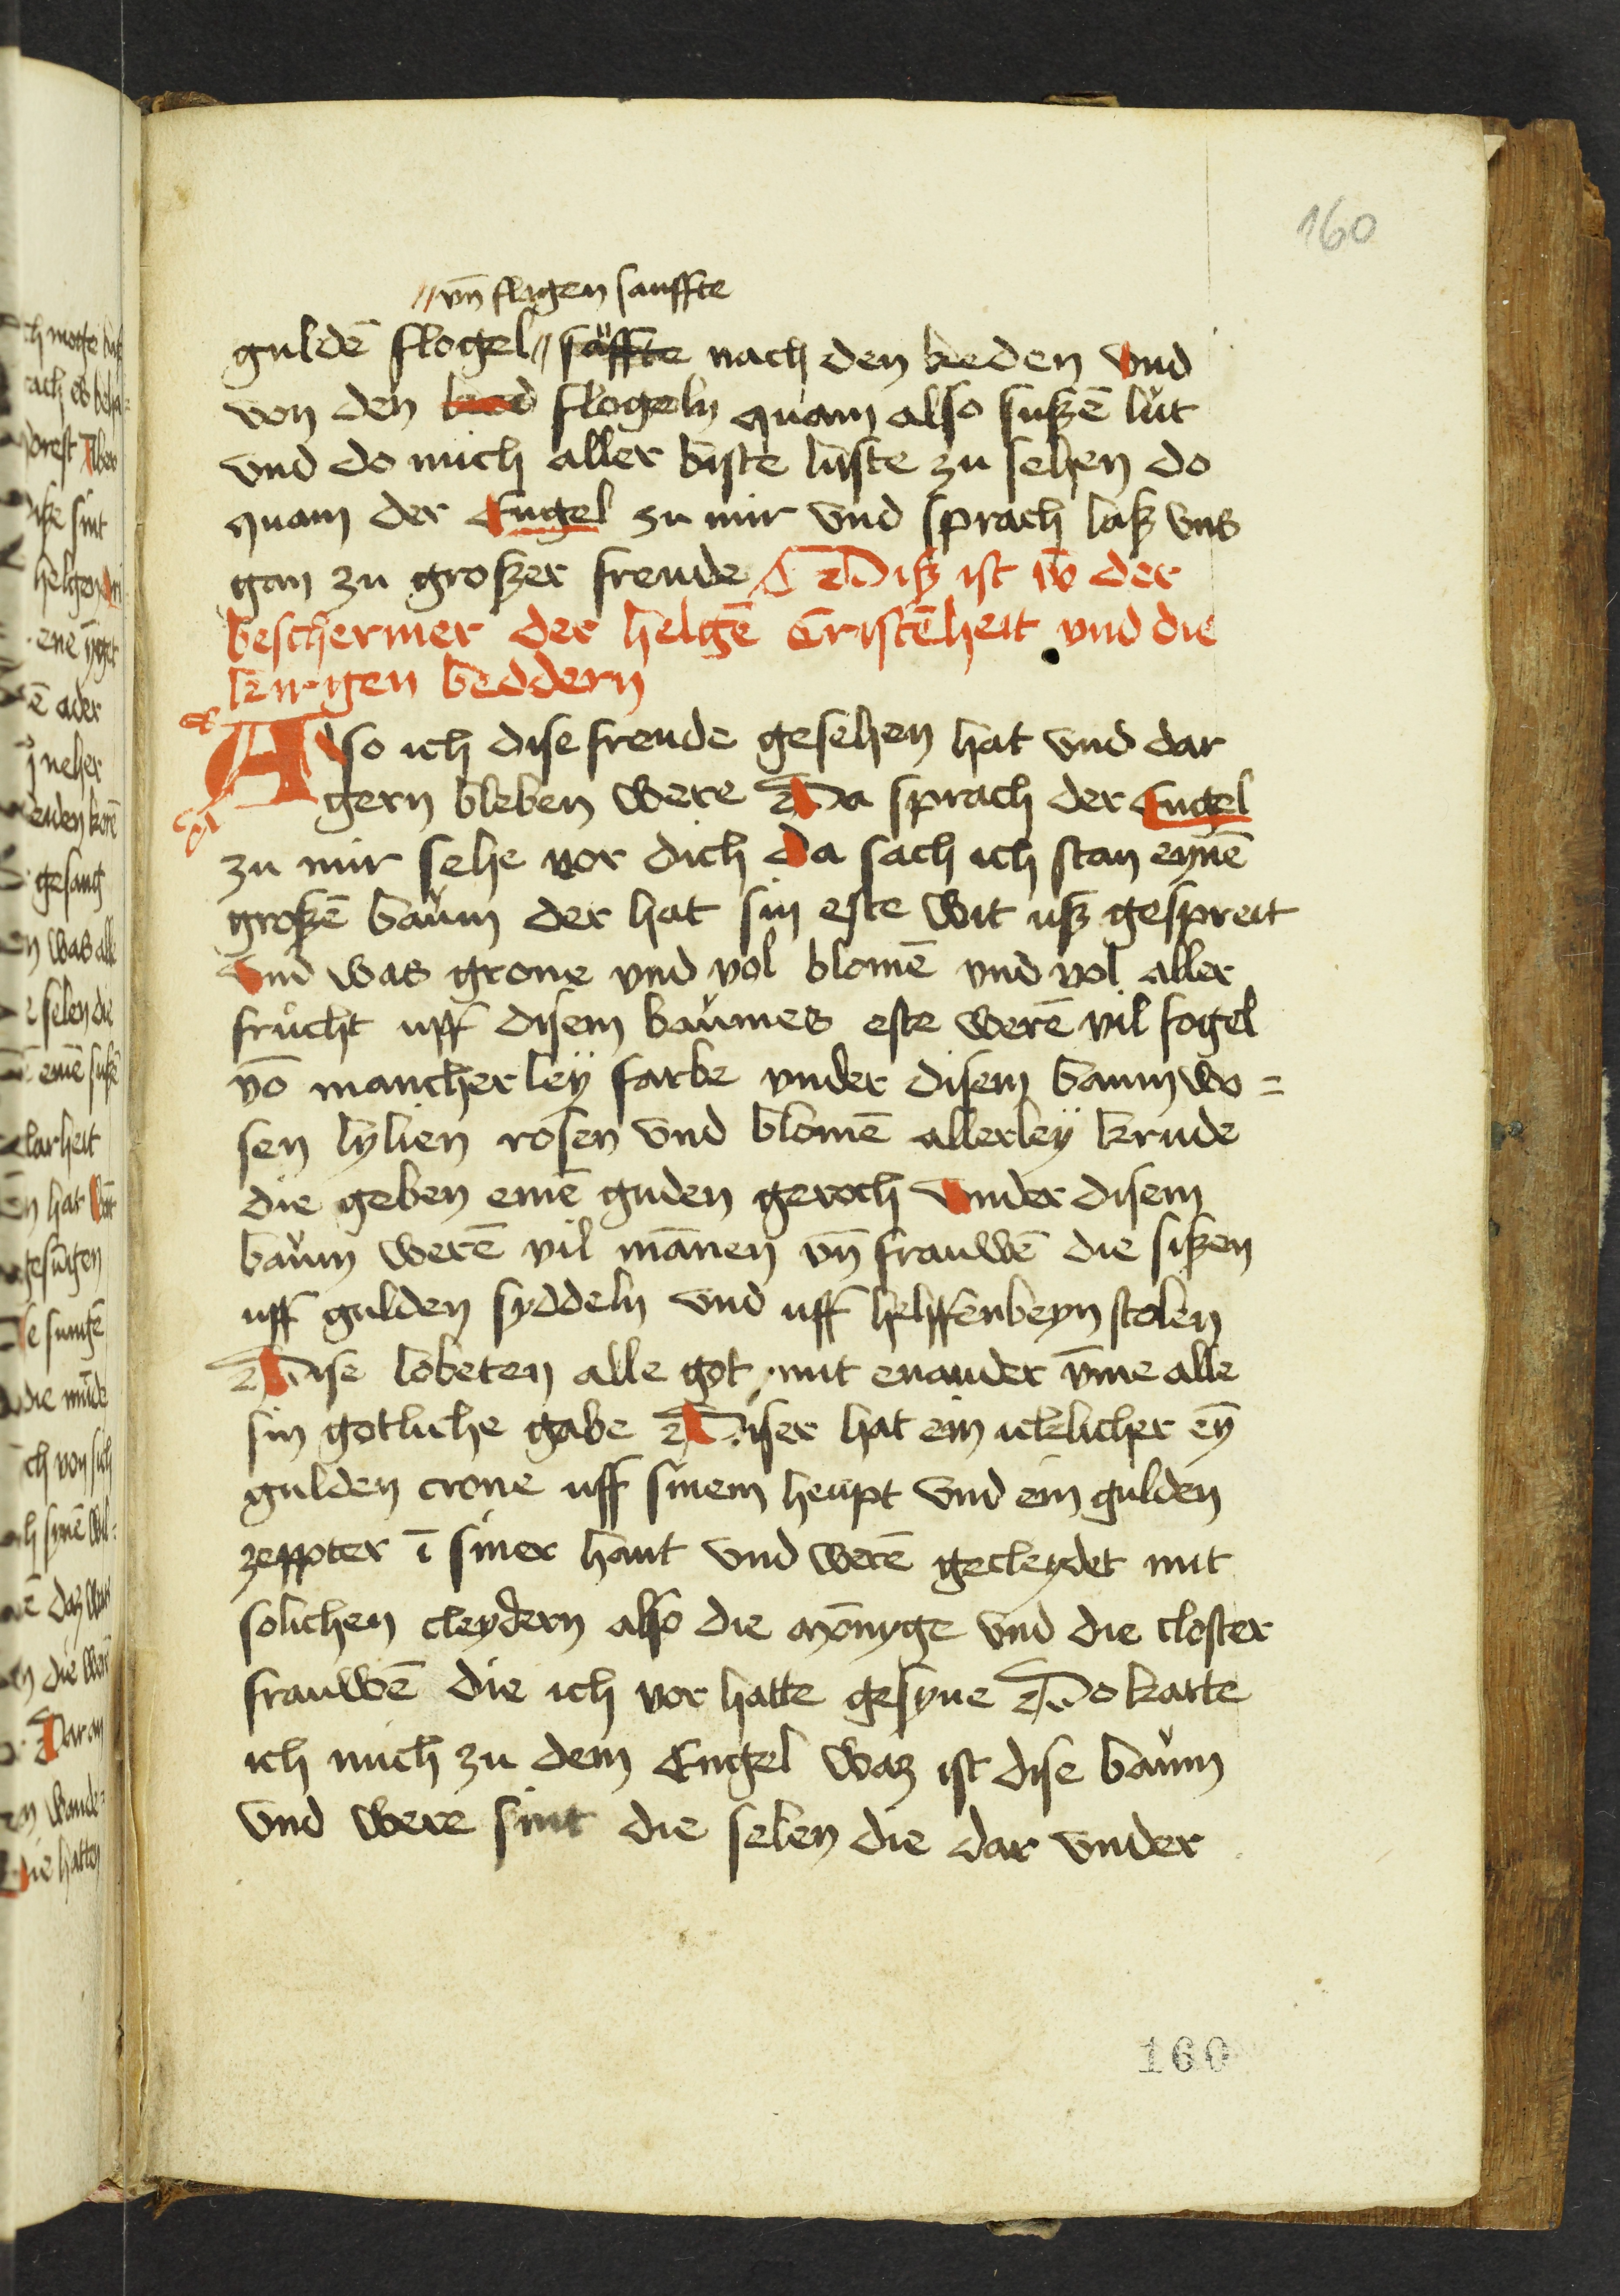 160
// vn̄ flugen sanffte
guldē flogel // säffte nach den keden vnd
von den keed flogeln quam also sußē lut
vnd do mich aller biste luste zu sehen do
quam der Engel zu mir vnd sprach laß vns
gan zu großer freude Diß ist vō der
beschermer der helgē Cristēheit vnd die
kirgen beddern
Also ich dise freude gesehen hat vnd dar
gern bleben were Da sprach der Engel
zu mir sehe vor dich Da sach ich stan eynē
großē baum der hat sin este wit uß gespreit
vnd was grone vnd vol blomē vnd vol aller
frucht uff disem baumes este werē vil fogel
vō mancherley farbe vnder disem baum wo=
sen lylien rosen vnd blomē allerley krude
die geben einē guden geroch vnder disem
baum werē vil mānen vn̄ frauwē die sißen
uff gulden syddeln vnd uff helffenbeyn stolen
Dise lobeten alle got mit enander v̄me alle
sin gotliche gabe Diser hat ein iclicher eȳ
gulden crone uff sinem heupt vnd ein gulden
zeppter ī siner hant vnd werē gecleydet mit
solichen cleydern also die mōnyge vnd die closter
frauwē die ich vor hatte gesyne Do karte
ich mich zu dem Engel waz ist dise baum
vnd were sint die selen die dar vnder
160